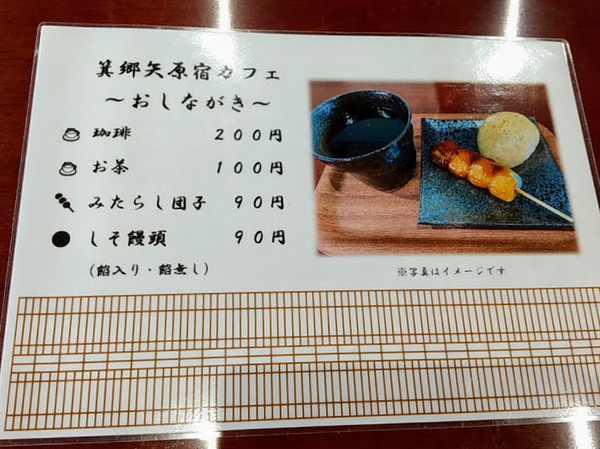 箕郷矢原宿カフェ
～おしながき～
珈琲 200円
お茶 100円
みたらし団子 90円
しそ饅頭 90円
(餡入り・餡無し)
※写真はイメージです